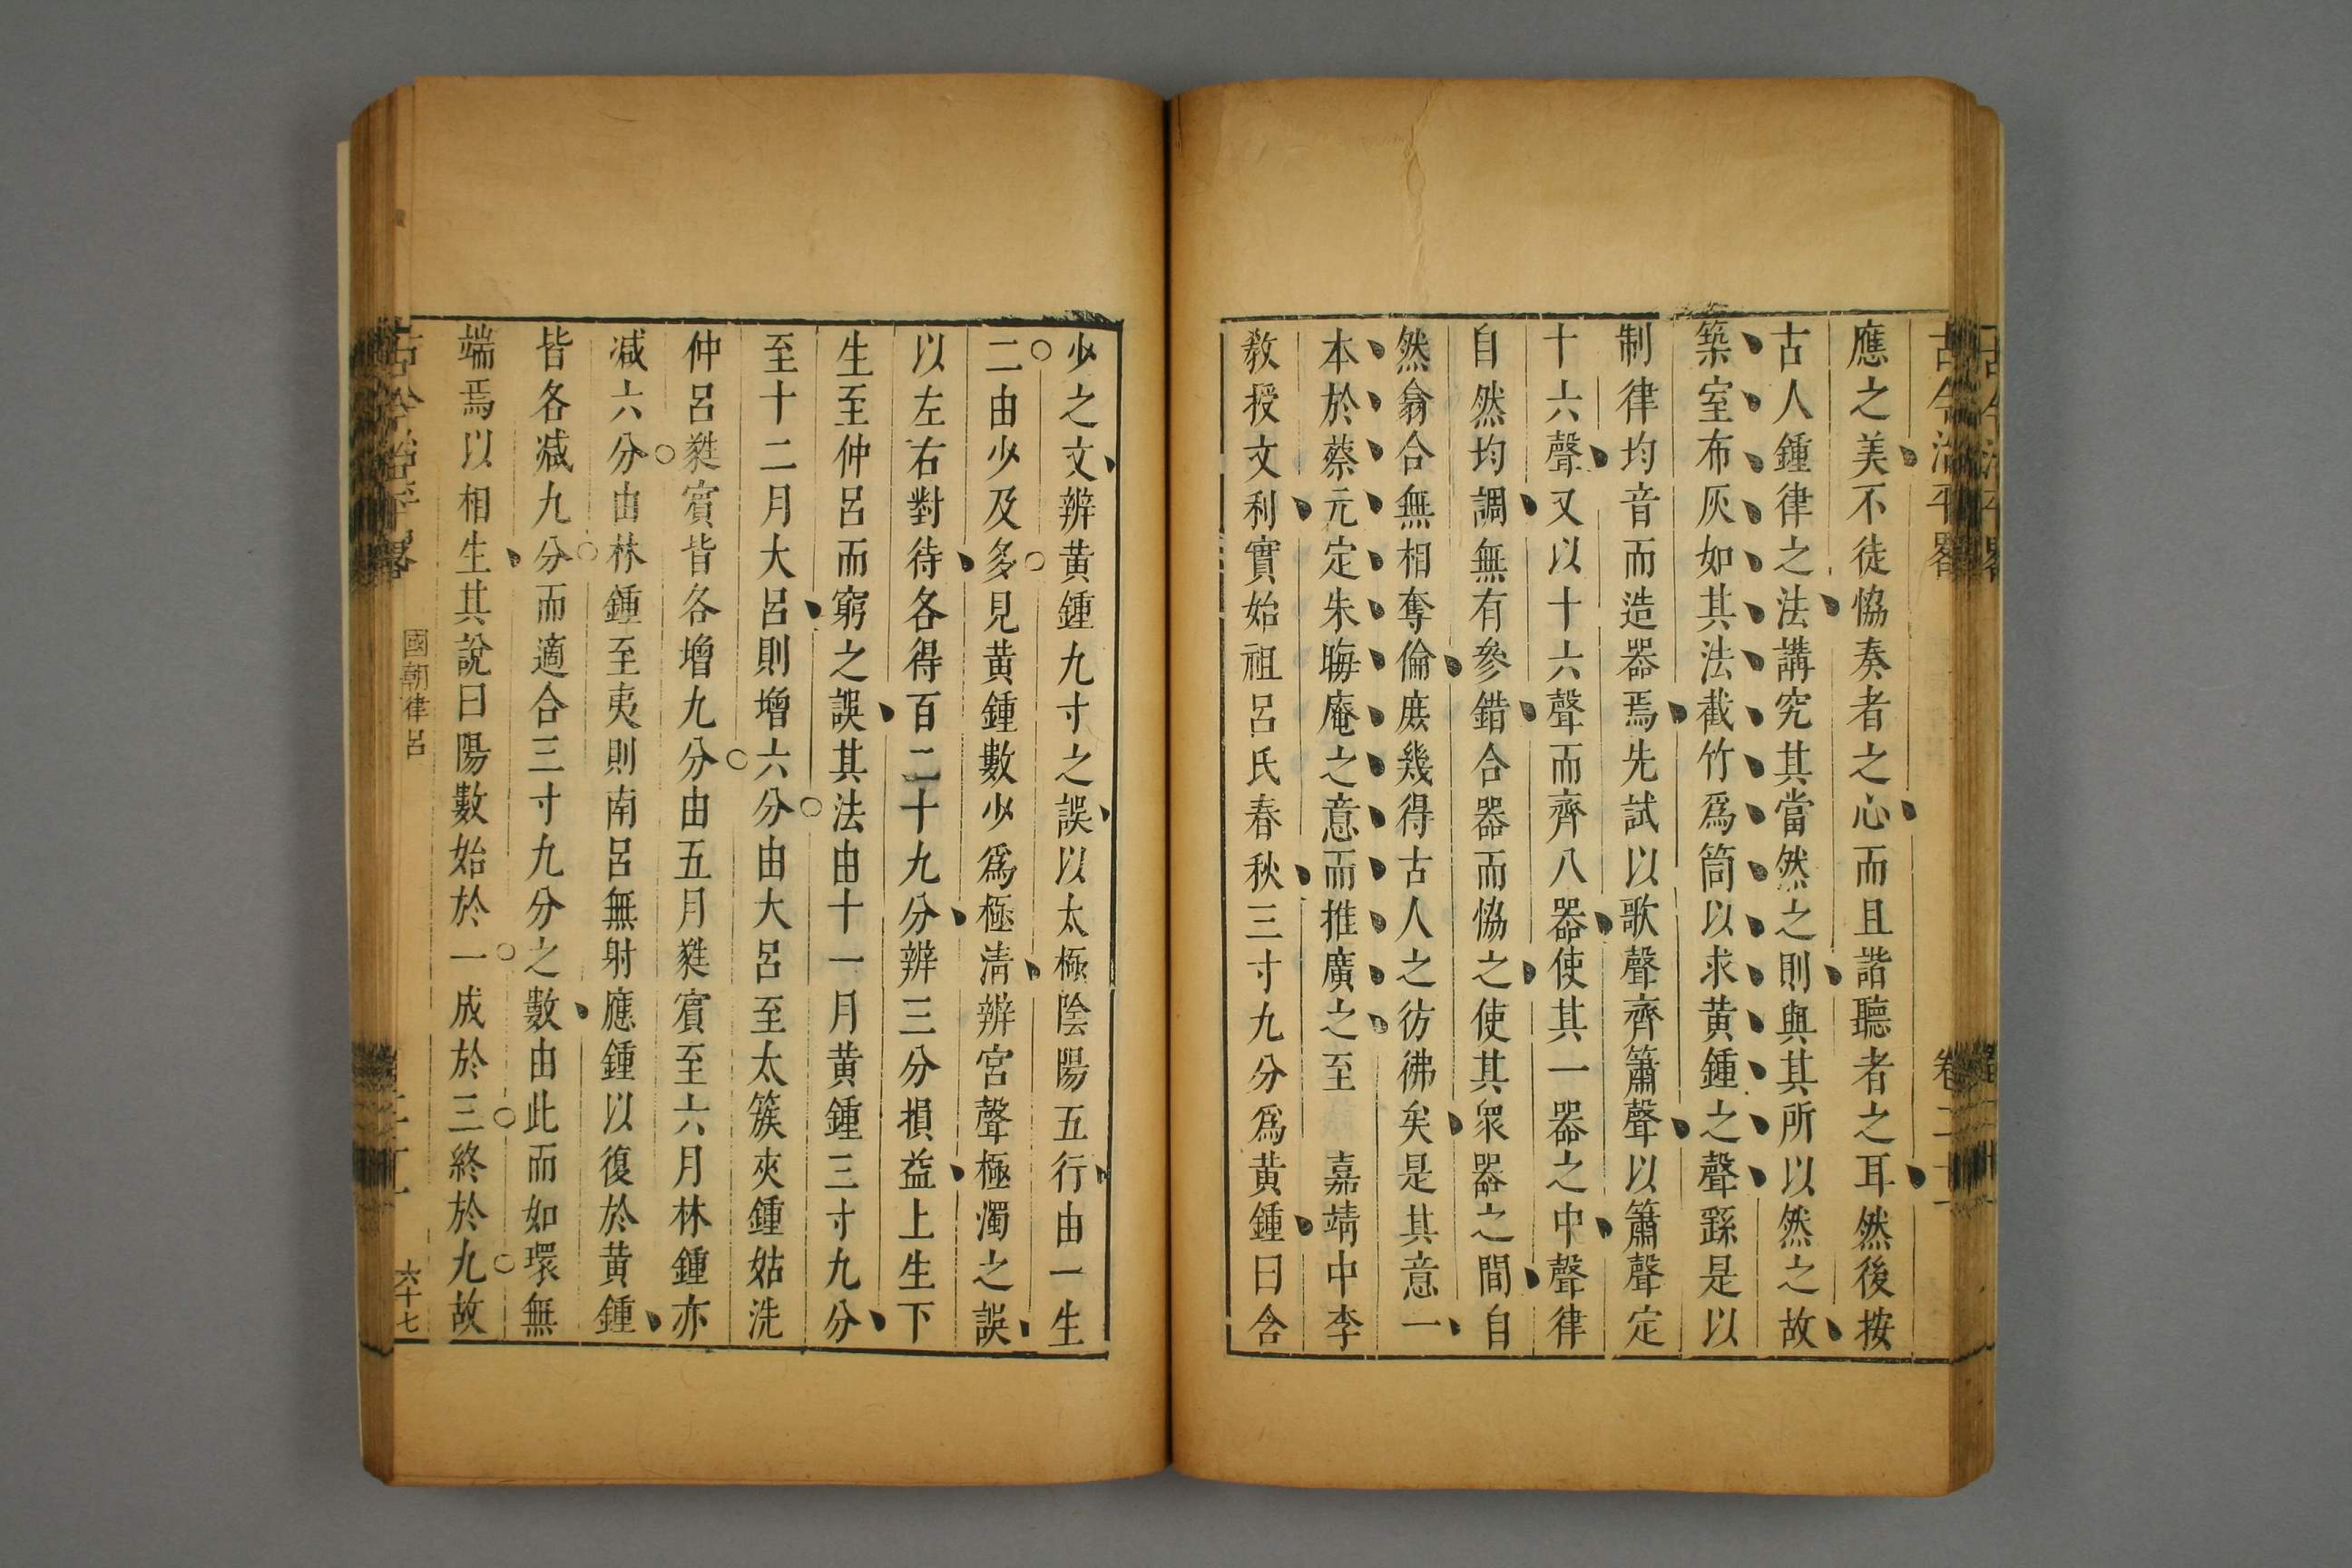 古今治平畧
卷二十一
應之美不徒恊奏者之心而且諧聽者之耳然後按
古人鍾律之法講究其當然之則與其所以然之故
築室布灰如其法截竹爲筒以求黃鍾之聲繇是以
制律均音而造器焉先試以歌聲齊簫聲以簫聲定
十六聲又以十六聲而齊八器使其一器之中聲律
自然均調無有參錯合器而恊之使其衆器之間自
然翕合無相奪倫庶幾得古人之彷彿矣是其意一
本於蔡元定朱晦庵之意而推廣之至 嘉靖中李
敎授文利實始祖呂氏春秋三寸九分爲黃鍾曰含
少之文辨黃鍾九寸之誤以太極陰陽五行由一生
二由少及多見黃鍾數少爲極淸辨宮聲極濁之誤
以左右對待各得百二十九分辨三分損益上生下
生至仲呂而窮之誤其法由十一月黃鍾三寸九分
至十二月大呂則增六分由大呂至太簇夾鍾姑洗
仲呂蕤賓皆各增九分由五月蕤賓至六月林鍾亦
减六分由林鍾至夷則南呂無射應鍾以復於黃鍾
皆各减九分而適合三寸九分之數由此而如環無
端焉以相生其說曰陽數始於一成於三終於九故
古今治平畧
國朝律呂
六十七